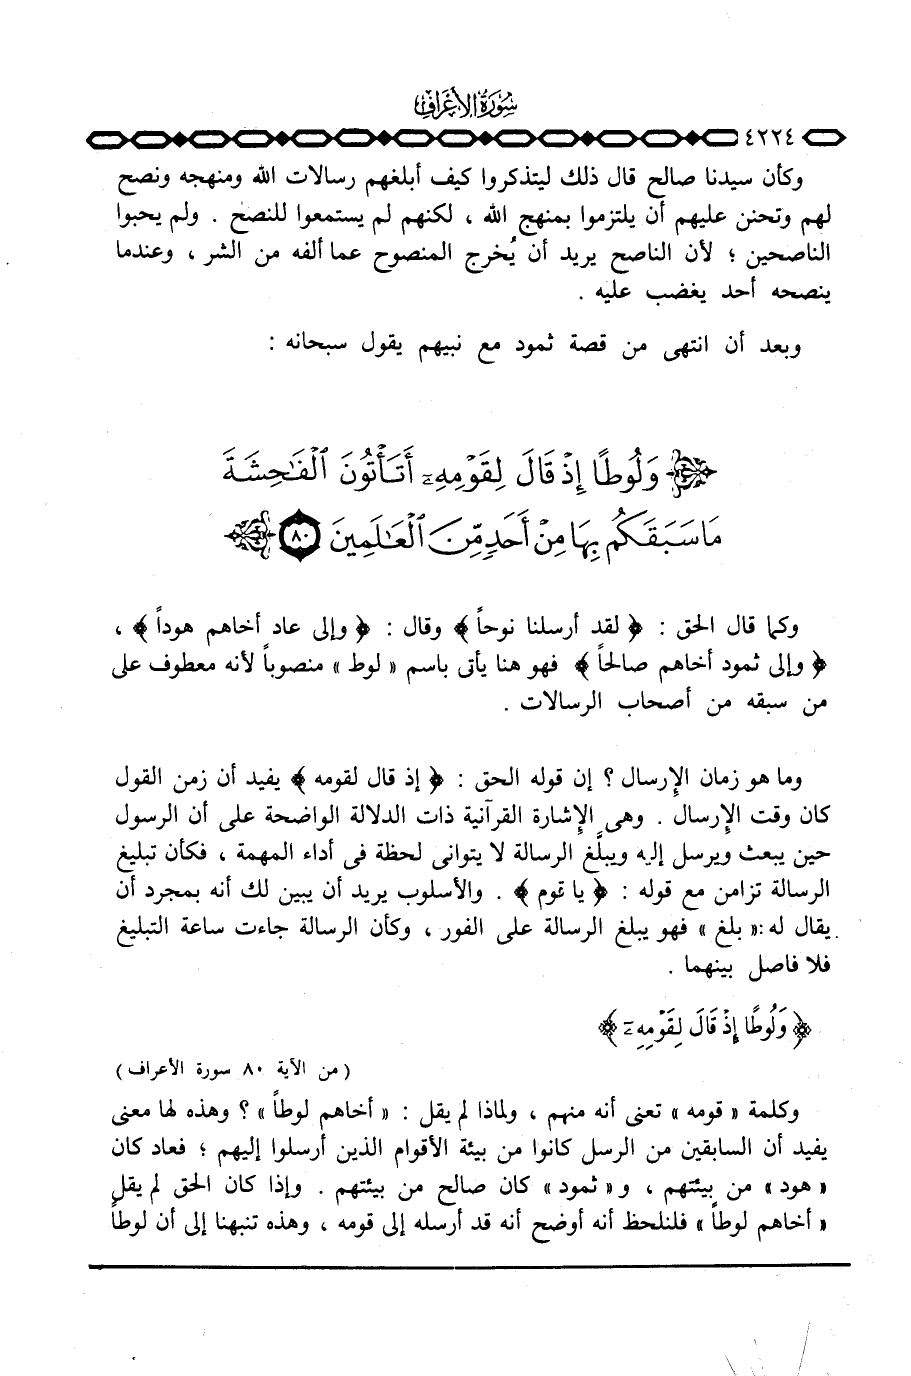 سُورَةُ الأَعْرَافِ
٤٢٢٤
وكأن سيدنا صالح قال ذلك ليتذكروا كيف أبلغهم رسالات الله ومنهجه ونصح
لهم وتحنن عليهم أن يلتزموا بمنهج الله ، لكنهم لم يستمعوا للنصح . ولم يحبوا
الناصحين ؛ لأن الناصح يريد أن يُخرج المنصوح عما ألفه من الشر ، وعندما
ينصحه أحد يغضب عليه .
وبعد أن انتهى من قصة ثمود مع نبيهم يقول سبحانه :
﴿ وَلُوطًا إِذْ قَالَ لِقَوْمِهِۦٓ أَتَأْتُونَ ٱلْفَـٰحِشَةَ
مَا سَبَقَكُم بِهَا مِنْ أَحَدٍ مِّنَ ٱلْعَـٰلَمِينَ ٨٠ ﴾
وكما قال الحق : ﴿ لقد أرسلنا نوحاً ﴾ وقال : ﴿ وإلى عاد أخاهم هوداً ﴾ ،
﴿ وإلى ثمود أخاهم صالحاً ﴾ فهو هنا يأتى باسم « لوط » منصوباً لأنه معطوف على
من سبقه من أصحاب الرسالات .
وما هو زمان الإرسال ؟ إن قوله الحق : ﴿ إذ قال لقومه ﴾ يفيد أن زمن القول
كان وقت الإرسال . وهى الإشارة القرآنية ذات الدلالة الواضحة على أن الرسول
حين يبعث ويرسل إليه ويبلَّغ الرسالة لا يتوانى لحظة فى أداء المهمة ، فكأن تبليغ
الرسالة تزامن مع قوله : ﴿ يا قوم ﴾ . والأسلوب يريد أن يبين لك أنه بمجرد أن
يقال له :« بلغ » فهو يبلغ الرسالة على الفور ، وكأن الرسالة جاءت ساعة التبليغ
فلا فاصل بينهما .
﴿ وَلُوطًا إِذْ قَالَ لِقَوْمِهِۦٓ ﴾
( من الآية ٨٠ سورة الأعراف )
وكلمة « قومه » تعنى أنه منهم ، ولماذا لم يقل : « أخاهم لوطاً » ؟ وهذه لها معنى
يفيد أن السابقين من الرسل كانوا من بيئة الأقوام الذين أرسلوا إليهم ؛ فعاد كان
« هود » من بيئتهم ، و« ثمود » كان صالح من بيئتهم . وإذا كان الحق لم يقل
« أخاهم لوطاً » فلنلحظ أنه أوضح أنه قد أرسله إلى قومه ، وهذه تنبهنا إلى أن لوطاً